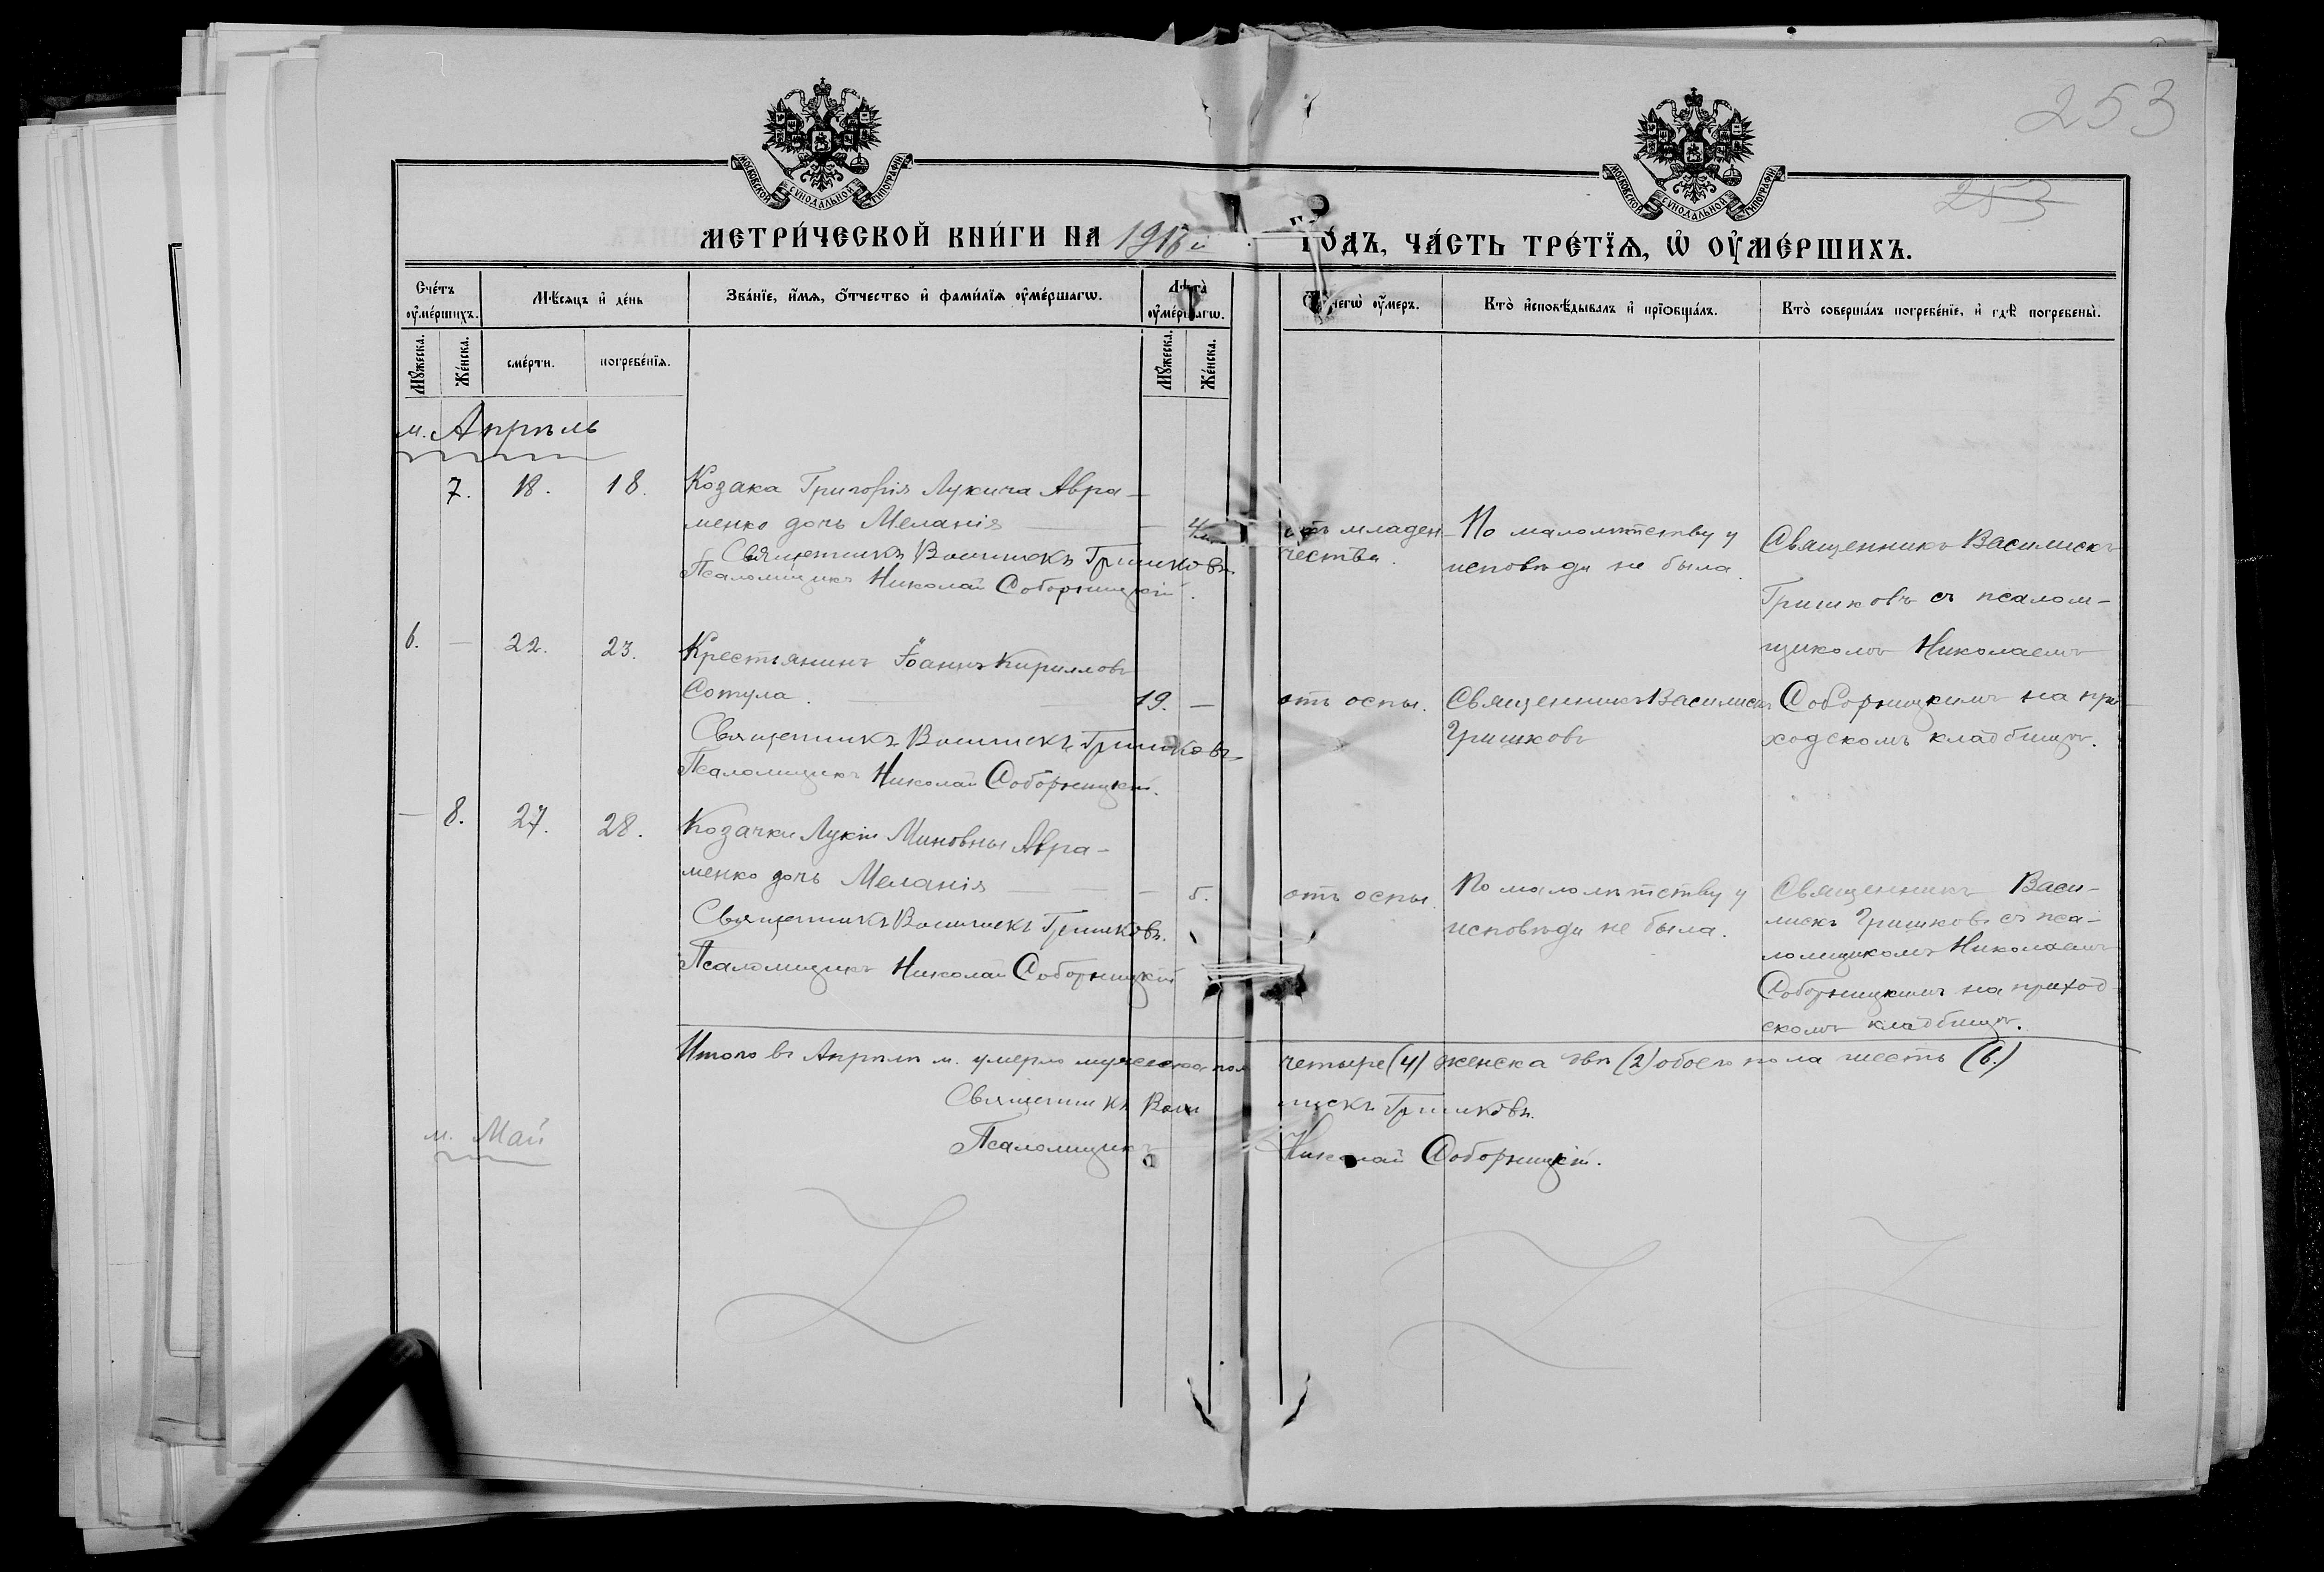 253
253
МОСКОВСКОЙ СУНОДАЛЬНОЙ ТИПОГРАФІИ
МОСКОВСКОЙ СУНОДАЛЬНОЙ ТИПОГРАФІИ
МЕТРИ́ЧЕСКОЙ КНИ́ГИ НА
ГО́ДЪ, ЧА́СТЬ ТРЕ́ТЇѦ, Ѡ҆ ОУ҆МЕ́РШИХЪ.
Сче́тъ оу҆ме́ршихъ.
Мѣ́сѧцъ и҆ де́нь
Зва́нїе, и҆́мѧ, ѻ҆́тчество и҆ фами́лїѧ оу҆ме́ршагѡ.
Лѣ́та оу҆ме́ршагѡ.
чегѡ̀ оу҆́меръ.
Кто̀ и҆сповѣ́дывалъ и҆ прїѡбща́лъ.
Кто̀ соверша́лъ погребе́нїе, и҆ гдѣ̀ погребены̀.
Мꙋ́жеска.
Же́нска.
сме́рти.
погребе́нїѧ.
Мꙋ́жеска.
Же́нска.
м. Апрѣль
7. 18. 18. Козака Григорія Лукича Авра-
менко дочь Меланія — — 4 м.
Священникъ Василискъ Гришковъ
Псаломщикъ Николай Соборницкій.
отъ младен-
чества.
По малолѣтству у
исповѣди не была.
Священникъ Василискъ
Гришковъ съ псалом-
щикомъ Николаемъ
Соборницкимъ на при-
ходскомъ кладбищѣ.
6. — 22. 23. Крестьянинъ Іоаннъ Кирилловъ
Сотула. — 19. —
Священникъ Василискъ Гришковъ
Псаломщикъ Николай Соборницкій.
отъ оспы.
Священникъ Василискъ
Гришковъ
— 8. 27. 28. Козачки Лукіи Миновны Авра-
менко дочь Меланія — — — 5.
Священникъ Василискъ Гришковъ.
Псаломщикъ Николай Соборницкій
отъ оспы.
По малолѣтству у
исповѣди не была.
Священникъ Васи-
лискъ Гришковъ съ пса-
ломщикомъ Николаемъ
Соборницкимъ на приход-
скомъ кладбищѣ.
Итого въ Апрѣлѣ м. умерло мужеска пола четыре (4) женска двѣ (2) обоего пола шесть (6.)
Священникъ Василискъ Гришковъ.
Псаломщикъ Николай Соборницкій.
м. Май